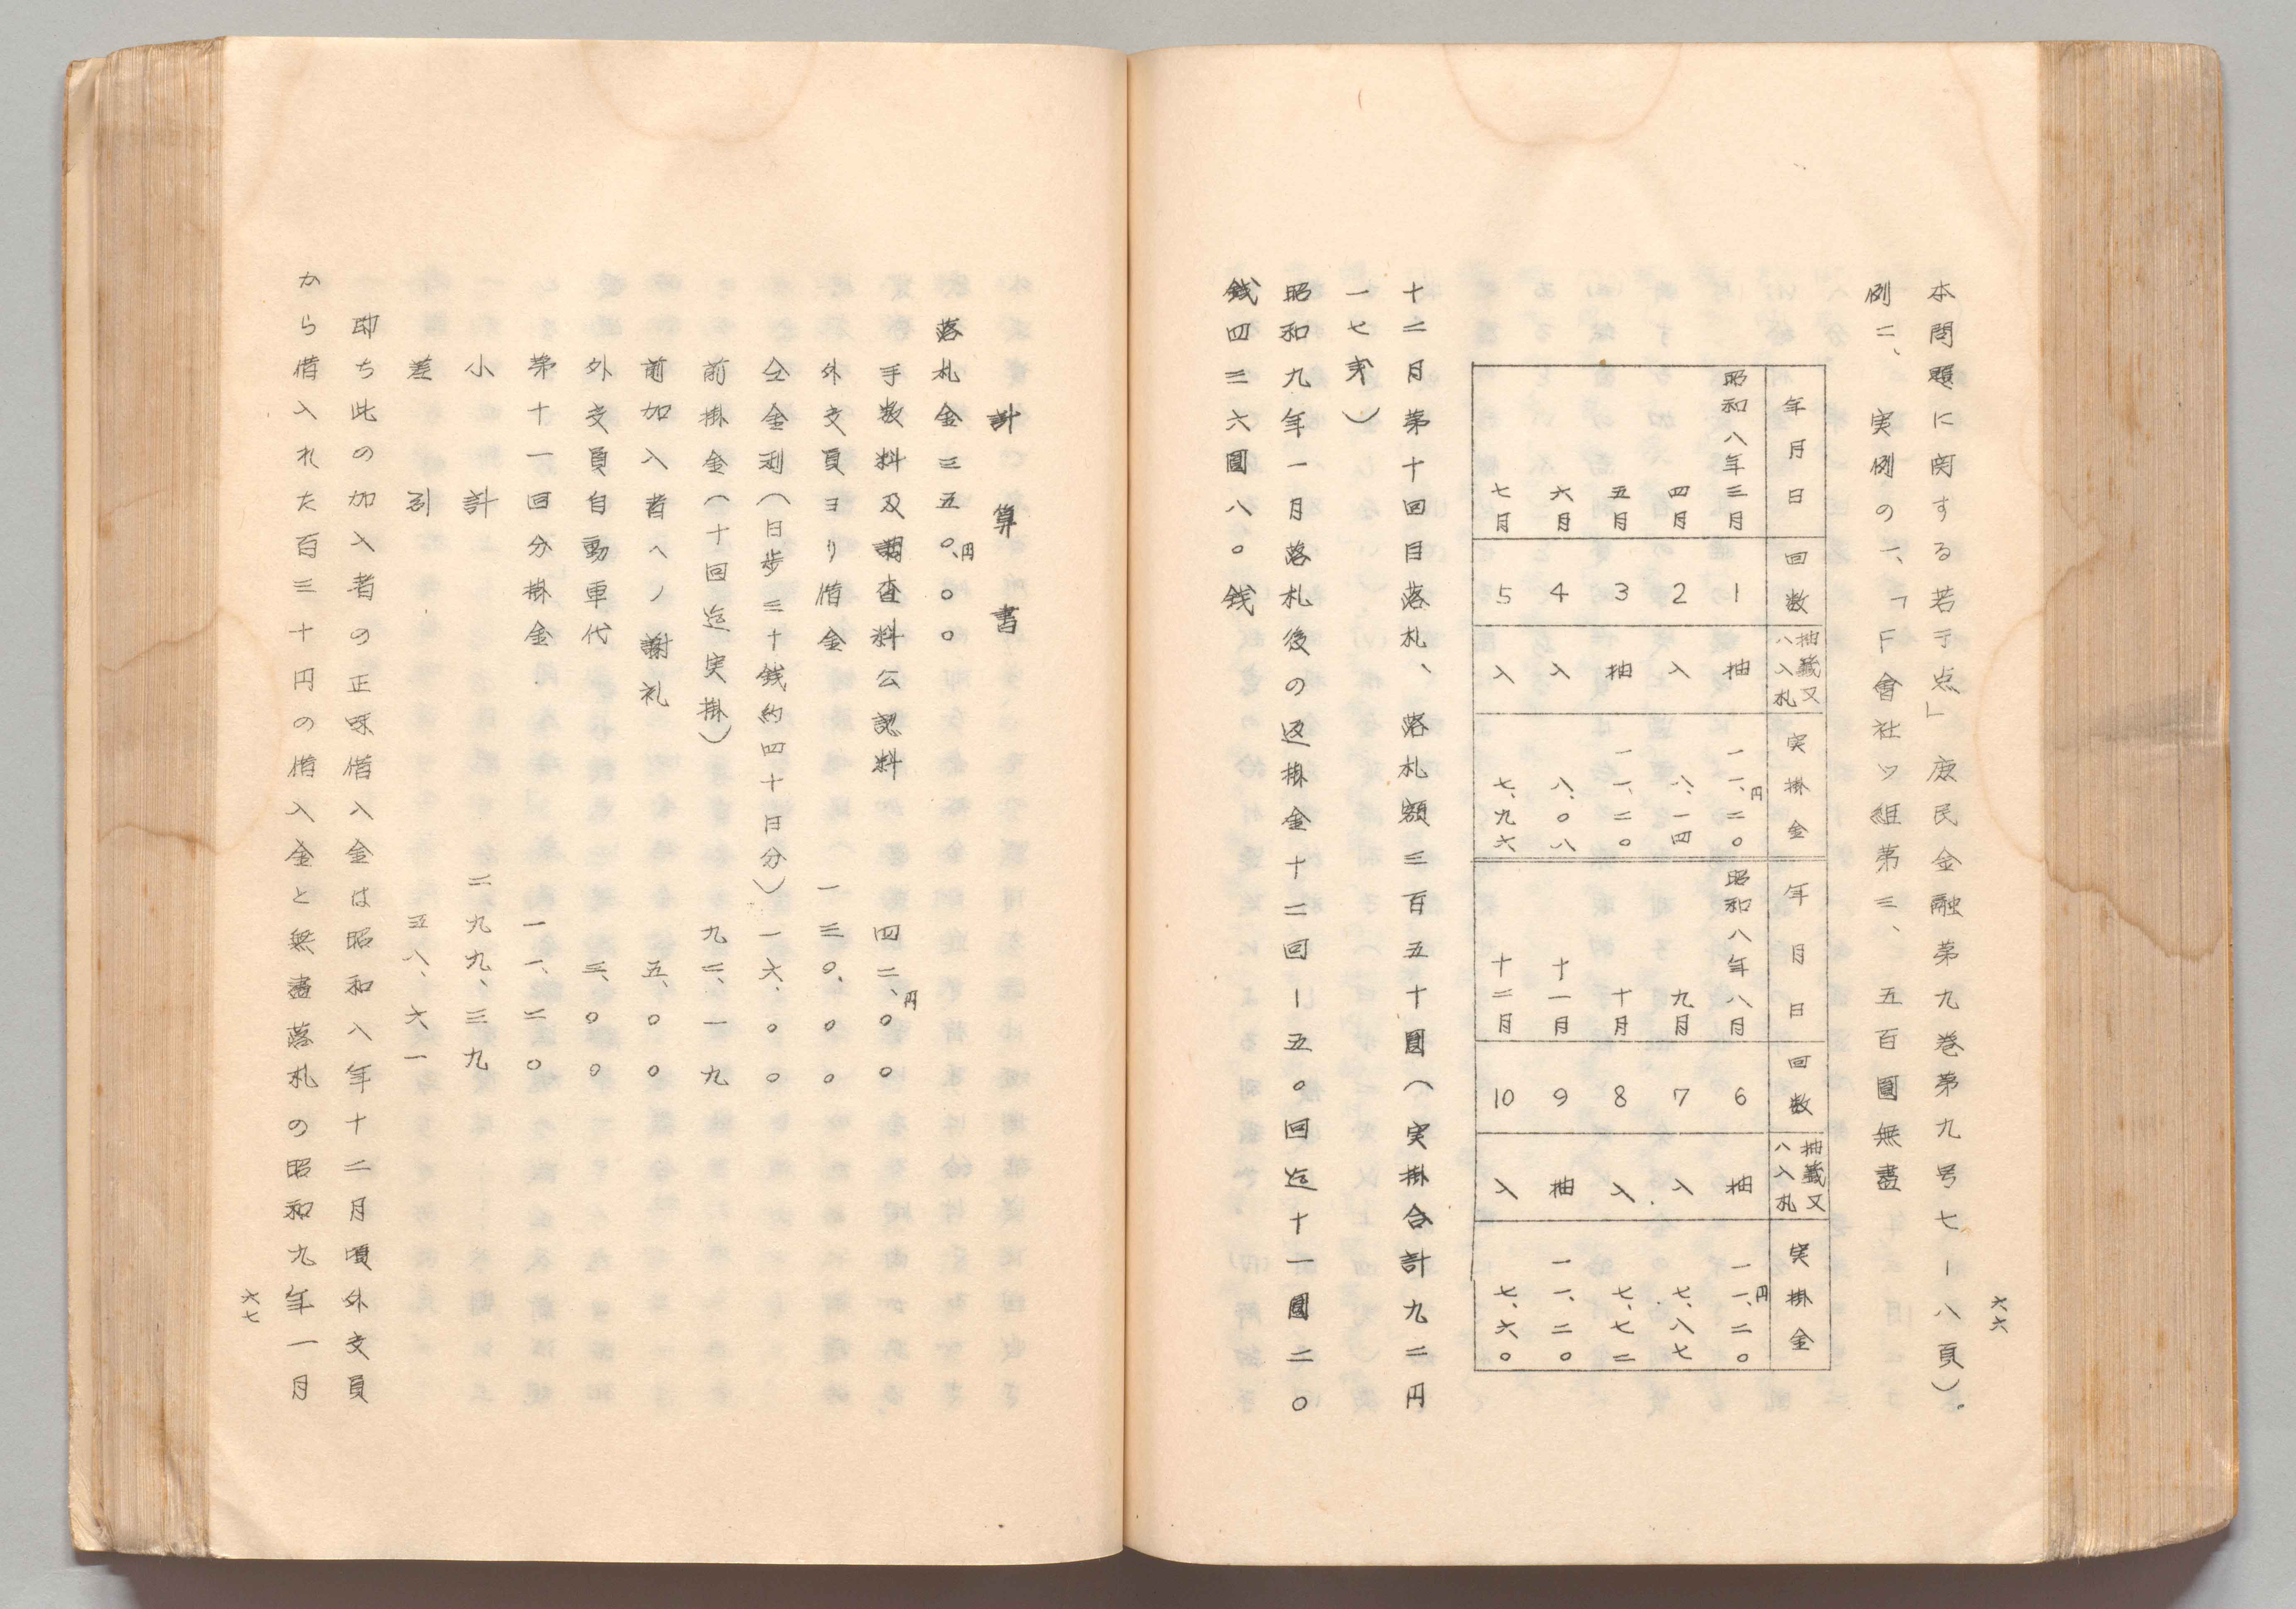 六六
本問題に関する若干点」庶民金融第九巻第九号七ー八頁)。
例二、実例の一、「F會社ツ組第三、五百圓無盡
年月日 回数 抽籤又ハ入札 実掛金 年月日 回数 抽籤又ハ入札 実掛金
昭和八年三月 1 抽 一一、二〇円 昭和八年八月 6 抽 一一、二〇円
四月 2 入 八、一四 九月 7 入 七、八七
五月 3 抽 一一、二〇 十月 8 入 七、七二
六月 4 入 八、〇八 十一月 9 抽 一一、二〇
七月 5 入 七、九六 十二月 10 入 七、六〇
十二月第十回目落札、落札額三百五十圓(実掛合計九二円
一七
昭和九年一月落札後の返掛金十二回ー五〇回迄十一圓二〇
銭四三六圓八〇銭
計算書
落札金三五〇、〇〇円
手数料及調査料公認料 四二、〇〇円
外交員ヨリ借金 一三〇、〇〇
仝金利(日歩三十銭約四十日分) 一六、〇〇
前掛金(十回迄実掛) 九二、一九
前加入者ヘノ謝礼 五、〇〇
外交員自動車代 三、〇〇
第十一回分掛金 一一、二〇
小計 二九九、三九
差引 五八、六一
即ち此の加入者の正味借入金は昭和八年十二月頃外交員
から借入れた百三十円の借入金と無盡落札の昭和九年一月
六七